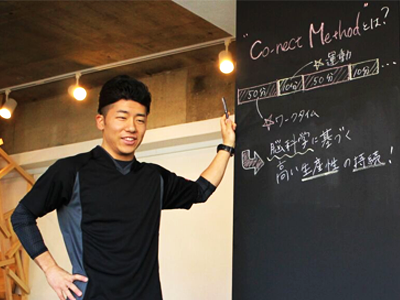 "Co-nect Method"とは?
☆運動
50分 10分 50分 10分 ...
☆ワークタイム
脳科学に基づく
高い生産性の持続!